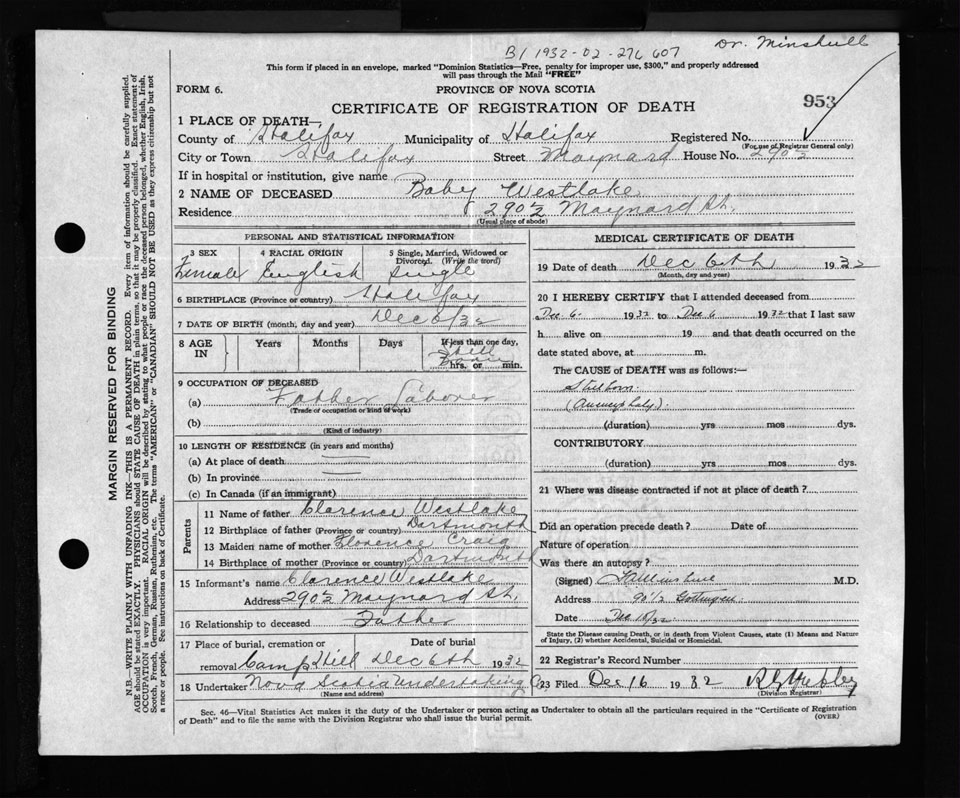 B1 1932-02-276607
Dr. Minshull
This form if placed in an envelope, marked "Dominion Statistics—Free, penalty for improper use, $300," and properly addressed
will pass through the Mail "FREE"
FORM 6.
PROVINCE OF NOVA SCOTIA
CERTIFICATE OF REGISTRATION OF DEATH
953
1 PLACE OF DEATH—
County of Halifax Municipality of Halifax Registered No.
(For use of Registrar General only)
City or Town Halifax Street Maynard House No. 290½
If in hospital or institution, give name
2 NAME OF DECEASED Baby Westlake
Residence 290½ Maynard St.
(Usual place of abode)
PERSONAL AND STATISTICAL INFORMATION
3 SEX 4 RACIAL ORIGIN 5 Single, Married, Widowed or
Divorced. (Write the word)
Female English Single
6 BIRTHPLACE (Province or country) Halifax
7 DATE OF BIRTH (month, day and year) Dec 6/32
8 AGE IN Years Months Days If less than one day,
Still Born
hrs. or min.
9 OCCUPATION OF DECEASED
(a) Father Laborer
(Trade of occupation or kind of work)
(b)
(Kind of industry)
10 LENGTH OF RESIDENCE (in years and months)
(a) At place of death
(b) In province
(c) In Canada (if an immigrant)
Parents
11 Name of father Clarence Westlake
12 Birthplace of father (Province or country) Dartmouth
13 Maiden name of mother Florence Craig
14 Birthplace of mother (Province or country) Dartmouth
15 Informant's name Clarence Westlake
Address 290½ Maynard St.
16 Relationship to deceased Father
17 Place of burial, cremation or Date of burial
removal Camp Hill Dec 6th 1932
18 Undertaker Nova Scotia Undertaking Co
(Name and address)
MEDICAL CERTIFICATE OF DEATH
19 Date of death Dec 6th 1932
(Month, day and year)
20 I HEREBY CERTIFY that I attended deceased from
Dec. 6 1932 to Dec 6 1932 that I last saw
h alive on 19 and that death occurred on the
date stated above, at m.
The CAUSE of DEATH was as follows:—
Stillborn.
(Anencephaly)
(duration) yrs mos dys.
CONTRIBUTORY
(duration) yrs mos dys.
21 Where was disease contracted if not at place of death?
Did an operation precede death? Date of
Nature of operation
Was there an autopsy?
(Signed) M.D.
Address 90½ Gottingen
Date Dec 15/32
State the Disease causing Death, or in death from Violent Causes, state (1) Means and Nature
of Injury, (2) whether Accidental, Suicidal or Homicidal.
22 Registrar's Record Number
23 Filed Dec 16 1932
(Division Registrar)
Sec. 46—Vital Statistics Act makes it the duty of the Undertaker or person acting as Undertaker to obtain all the particulars required in the "Certificate of Registration
of Death" and to file the same with the Division Registrar who shall issue the burial permit.
(OVER)
MARGIN RESERVED FOR BINDING
N.B.—WRITE PLAINLY WITH UNFADING INK—THIS IS A PERMANENT RECORD. Every item of information should be carefully supplied.
AGE should be stated EXACTLY. PHYSICIANS should STATE CAUSE OF DEATH in plain terms, so that it may be properly classified. Exact statement of
OCCUPATION is very important. RACIAL ORIGIN will be described by stating to what people or race the deceased person belonged, whether English, Irish,
Scotch, French, German, Russian, Ruthenian, etc. The terms "AMERICAN" or "CANADIAN" SHOULD NOT BE USED as they express citizenship but not
a race or people. See instructions on back of Certificate.